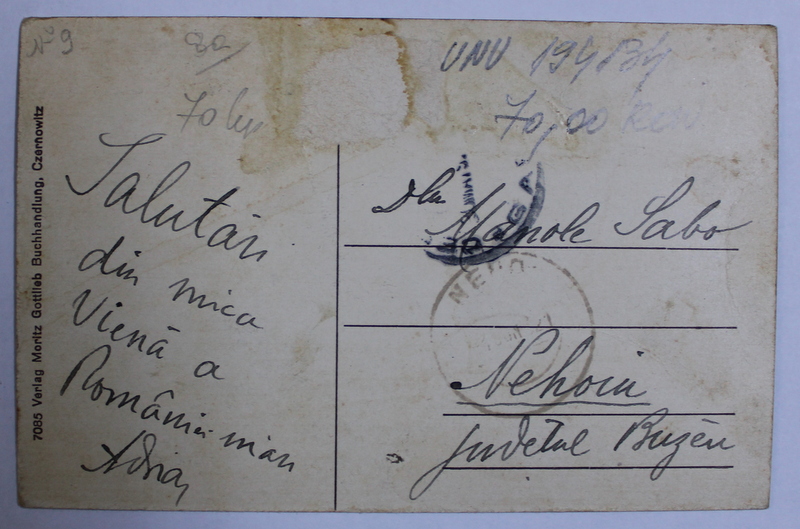 No 9
80/
70 lei
UNU 194 B4
70,00
7085 Verlag Moritz Gottlieb Buchhandlung, Czernowitz
Salutări
din mica
Vienă a
României mari
Adrian
Dlui
Manole Sabo
NEHO
Nehoiu
județul Buzău